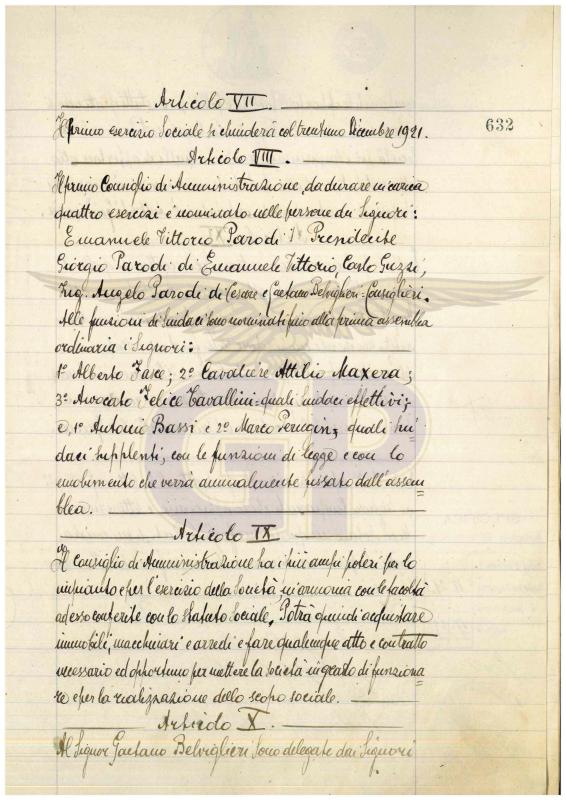 Articolo VII.
Il primo esercizio Sociale si chiuderà col trentuno Dicembre 1921.
632
Articolo VIII.
Il primio Consiglio di Amministrazione, da durare in carica
quattro esercizi è nominato nelle persone dei Signori:
Emanuele Vittorio Parodi Presidente
Giorgio Parodi di Emanuele Vittorio, Carlo Guzzi,
Ing. Angelo Parodi di Cesare e Gaetano Belviglieri-Consiglieri.
Alle funzioni di Sindaci sono nominati fino alla prima assemblea
ordinaria i Signori:
1° Alberto Fasce; 2° Cavaliere Attilio Maxera;
3° Avvocato Felice Cavallini quali sindaci effettivi;
e, 1° Antonio Bassi e 2° Marco Perugin, quali sin=
daci supplenti, con le funzioni di legge e con lo
emolumento che verrà annualmente fissato dall'assem=
blea.
Articolo IX
Il consiglio di Amministrazione ha i più ampi poteri per lo
impianto e per l'esercizio della Società, in armonia con le facoltà
ad esso conferite con lo Statuto Sociale. Potrà quindi acquistare
immobili, macchinari e arredi e fare qualunque atto e contratto
necessario ed opportuno per mettere la Società in grado di funziona=
re e per la realizzazione dello scopo sociale.
Articolo X.
Al Signor Gaetano Belviglieri sono delegate dai Signori
GP